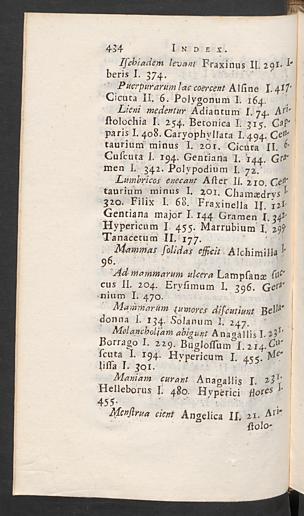 434 INDEX.
Ischiadem levant Fraxinus II. 291. I-
beris I. 374.
Puerpurarum lac coercent Alsine I. 417.
Cicuta II. 6. Polygonum I. 164.
Lieni medentur Adiantum I. 74. Ari-
stolochia I. 254. Betonica I. 315. Cap-
paris I. 408. Caryophyllata I. 494. Cen-
taurium minus I. 201. Cicuta II. 6.
Cuscuta I. 194. Gentiana I. 144. Gra-
men I. 342. Polypodium I. 72.
Lumbricos enecant Aster II. 210. Cen-
taurium minus I. 201. Chamædrys I.
320. Filix I. 68. Fraxinella II. 121.
Gentiana major I. 144 Gramen I. 342.
Hypericum I. 455. Marrubium I. 299
Tanacetum II. 177.
Mammas solidas efficit Alchimilla I.
96.
Ad mammarum ulcera Lampsanæ suc-
cus II. 204. Erysimum I. 396. Gera-
nium I. 470.
Mammarum tumores discutiunt Bella-
donna I. 134. Solanum I. 247.
Melancholiam abigunt Anagallis I. 231.
Borrago I. 229. Buglossum I. 214. Cu-
scuta I. 194. Hypericum I. 455. Me-
lissa I. 301.
Maniam curant Anagallis I. 231.
Helleborus I. 480. Hyperici flores I.
455.
Menstrua cient Angelica II. 21. Ari-
stolo-